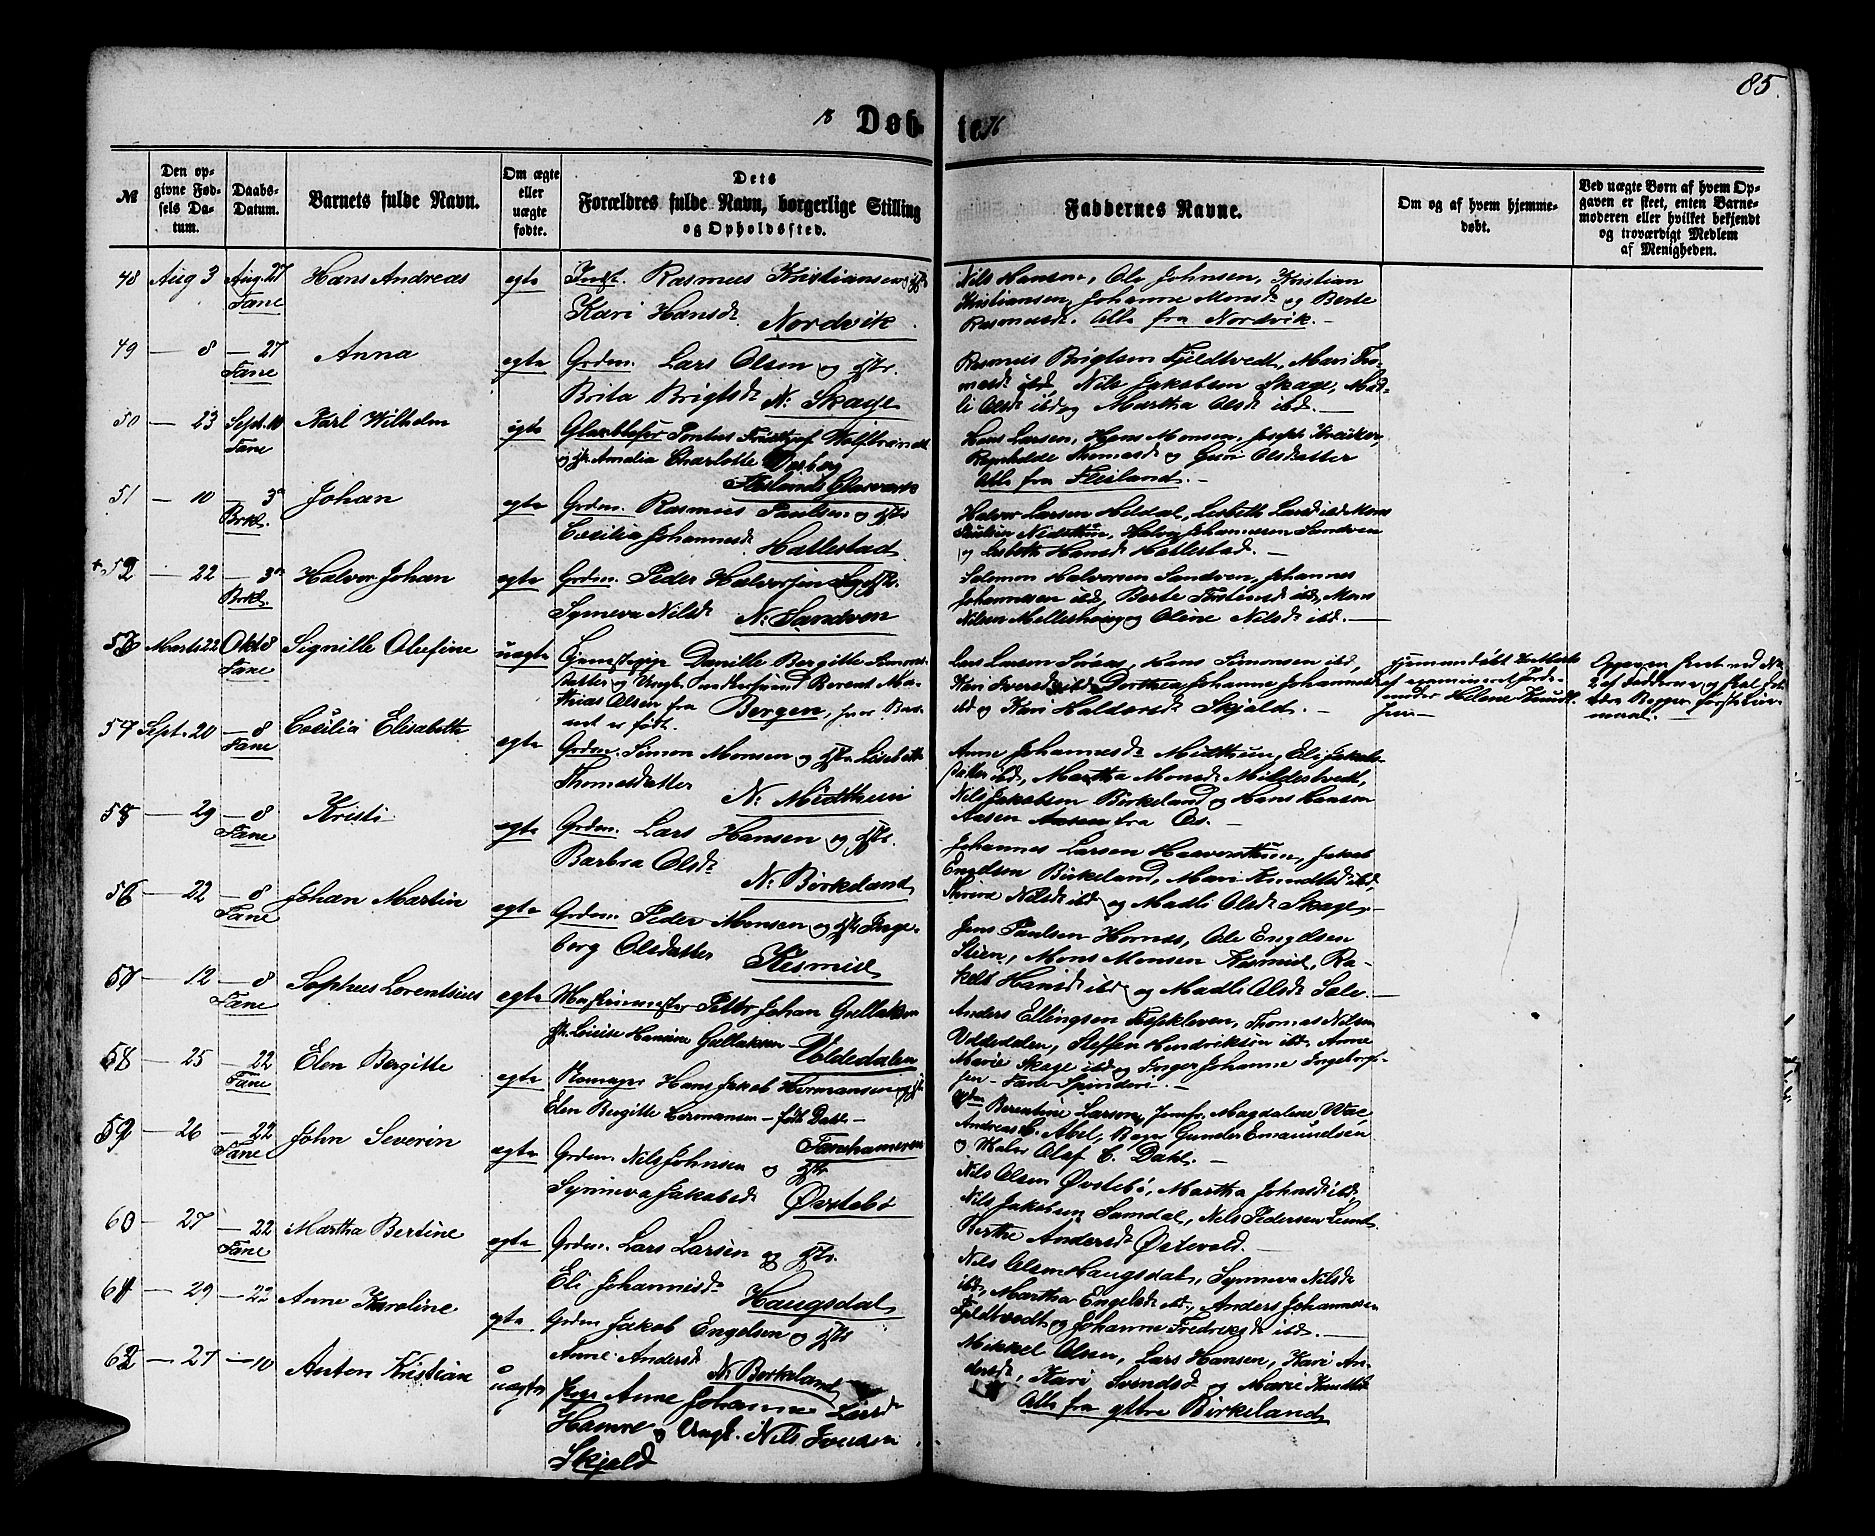 85.
18 Døbte 76
№
Den opgivne Fødsels Datum.
Daabs-Datum.
Barnets fulde Navn.
Om ægte eller uægte fødte.
Dets Forældres fulde Navn, borgerlige Stilling og Opholdssted.
Faddernes Navne.
Om og af hvem hjemmedøbt.
Ved uægte Børn af hvem Opgaven er skeet, enten Barnemoderen eller hvilket bekjendt og troværdigt Medlem af Menigheden.
48 Aug 3 Aug. 27 Fane Hans Andreas egte Inds. Rasmus Kristiansen og Hst
Kari Hansd. Nordvik.
Nils Hansen, Ole Johnsen, Kristian
Kristiansen, Johanne Monsd og Berte
Rasmusd. Alle fra Nordvik. —
49 — 8 — 27 Fane Anna egte Grdm. Lars Olsen og Hstr.
Brita Brigtsd N. Skage
Rasmus Brigtsen Fjeldtvedt, Mari Tho-
masd ibd, Nils Jakobsen Skage, Mad-
li Olsd ibd og Martha Olsd ibd. —
50 — 23 Sept. 10 Fane Karl Wilhelm egte Pontus
og Amalia Charlotte
Fleslands Glasværk
Hans Larsen, Hans Monsen, Joseph
og Guri Olsdatter
Alle fra Flesland. —
51 — 10 — 3 Brkl. Johan egte Grdm. Rasmus Paulsen og Hstr
Cecilia Johannesd. Hallestad
Halvor Larsen Heldal, Lisbeth Larsd ibd Mons
Paulsen Midtthun, Halvor Johannessen Sandven
og Lisbeth Hansd Hallestad. —
+ 52 — 22 — 3 Brkl. Halvor Johan egte Grdm. Peder Halvorsen og Hstr.
Synneva Nilsd N. Sandven
Salomon Halvorsen Sandven, Johannes
Johannessen ibd, Berte Torstensd ibd, Mons
Nilsen Melleshaug og Oline Nilsd ibd. —
53 Marts 22 Oktb 8 Fane Signille Olufine uægte Tjenestepige Danille Bergitte Simons-
datter og Ungk. Berent Ma-
thias Olsen fra Bergen, hvor Bar-
net er født.
Lars Larsen Søraas, Hans Simonsen ibd,
Kari Iversd ibd Dorthea Johanne Johannesd
ibd og Kari Haldorsd Skjold. —
Hjemmedøbt
af examineret Jorde-
moder Helene Knud-
sen —
57 Sept. 20 — 8 Fane Cecilia Elisabeth egte Grdm. Simon Monsen og Hstr Lisebeth
Thomasdatter N. Midtthun
Anne Johannesd Midtthun, Eli Jakobs-
datter ibd, Martha Monsd Mildestvedt,
Nils Jakobsen Birkeland og Hans Hansen
Aasen fra Os. —
55 — 29 — 8 Fane Kristi egte Grdm. Lars Hansen og Hstr.
Barbra Olsd N. Birkeland
Johannes Larsen Haaversthun, Jakob
Engelsen Birkeland, Mari Knudtsd ibd,
Nilsd ibd og Madli Olsd Skage —
56 — 22 — 8 Fane Johan Martin egte Grdm. Peder Monsen og Hstr Inge-
borg Olsdatter Kismul
Jens Paulsen Hornæs, Ole Engelsen
Stien, Mons Monsen Kismul, Ra-
kel Hansd ibd og Madli Olsd Sele. —
57 — 12 — 8 Fane Sophus Lorentsius egte Maskinmester Petter Johan Gullaksen
Louise Hansine Gullaksen — Voldedalen
Anders Ellingsen Fespkleven, Thomas Nilsen
Voldedalen, Steffen Hendriksen ibd Anne
Marie Skage ibd og Inger Johanne Ingebrigt-
sen — Fane Spinderi. —
58 — 25 — 22 Fane Elen Bergitte egte Hans Jakob Hermansen og Hst
Elen Bergitte Hermansen — født Dahl —
Fanehammeren
Berentine Larsen, Jomfr. Magdalene
Andreas C. Abel, Gunder Emanuelsen
og Maler Olaf C. Dahl. —
59 — 26 — 22 Fane John Severin egte Grdm. Nils Johnsen og Hstr
Synneva Jakobsd Øvstebø
Nils Olsen Øvstebø, Martha Johnsd ibd,
Nils Jakobsen Samdal, Nils Pedersen
Berthe Andersd Østevold. —
60 — 27 — 22 Fane Martha Bertine egte Grdm. Lars Larsen og Hstr.
Eli Johannesd Haugsdal
Nils Olsen Haugsdal, Synneva Nilsd
ibd, Martha Engelsd ibd, Anders Johannesen
Fjeldtvedt og Johanne Fredriksd ibd. —
61 — 29 — 22 Anne Karoline egte Grdm Jakob Engelsen og Hstr
Anne Andersd N. Birkeland
Mikkel Olsen, Lars Hansen, Kari An-
dersd, Kari Svendsd og Marie Knudtsd
Alle fra yttre Birkeland
62 — 27 — 10 Anton Kristian uægte Pige Anne Johanne Larsd
Hamre og Ungk. Nils Iversen
Skjold